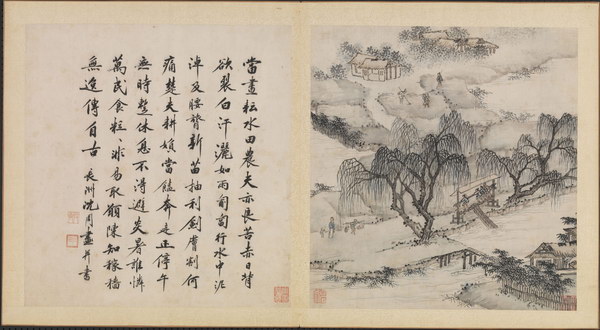 當晝耘水田農夫亦良苦赤日背
欲裂白汗灑如雨匍匐行水中泥
淖及腰膂新苗抽利劍膚割何
痛楚夫耕婦當饁奔走正停午
無時暫休息不得避炎暑誰憐
萬民食粒〻非易取願陳知稼穡
無逸傳自古 長洲沈周畫并書